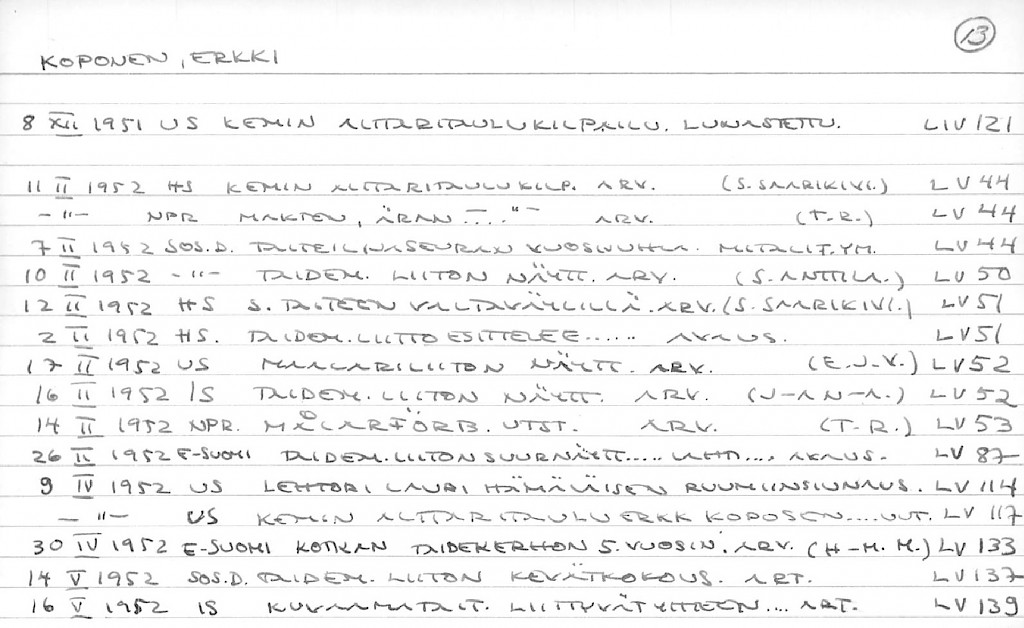 13
KOPONEN, ERKKI
8 XII 1951 US KEMIN ALTTARITAULUKILPAILU. LUNASTETTU. LIV 121
11 II 1952 HS KEMIN ALTTARITAULUKILP. ARV. (S. SAARIKIVI.) LV 44
-"- NPR MAKTEN, ÄRAN ..." ARV. (T-R.) LV 44
7 II 1952 SOS.D. TAITEILIJASEURAN VUOSIJUHLA. MITALIT. YM. LV 44
10 II 1952 -"- TAIDEM. LIITON NÄYTT. ARV. (S. ANTTILA.) LV 50
12 II 1952 HS S. TAITEEN VALTAVÄYLILLÄ. ARV. (S. SAARIKIVI.) LV 51
2 II 1952 HS. TAIDEM. LIITTO ESITTELEE...... AVAUS. LV 51
17 II 1952 US MAALARILIITON NÄYTT. ARV. (E.J.V.) LV 52
16 II 1952 IS TAIDEM. LIITON NÄYTT. ARV. (J-A N-A.) LV 52
14 II 1952 NPR. MÅLARFÖRB. UTST. ARV. (T-R.) LV 53
26 II 1952 E-SUOMI TAIDEM. LIITON SUURNÄYTT..... LAHTI.... AVAUS. LV 87
9 IV 1952 US LEHTORI LAURI HÄMÄLÄISEN RUUMIINSIUNAUS. LV 114
-"- US KEMIN ALTTARITAULU ERKK KOPOSEN.... UUT. LV 117
30 IV 1952 E-SUOMI KOTKAN TAIDEKERHON 5. VUOSIN. ARV. (H-M. M.) LV 133
14 V 1952 SOS.D. TAIDEM. LIITON KEVÄTKOKOUS. ART. LV 137
16 V 1952 IS KUVAAMATAIT. LIITTYVÄT YHTEEN.... ART. LV 139